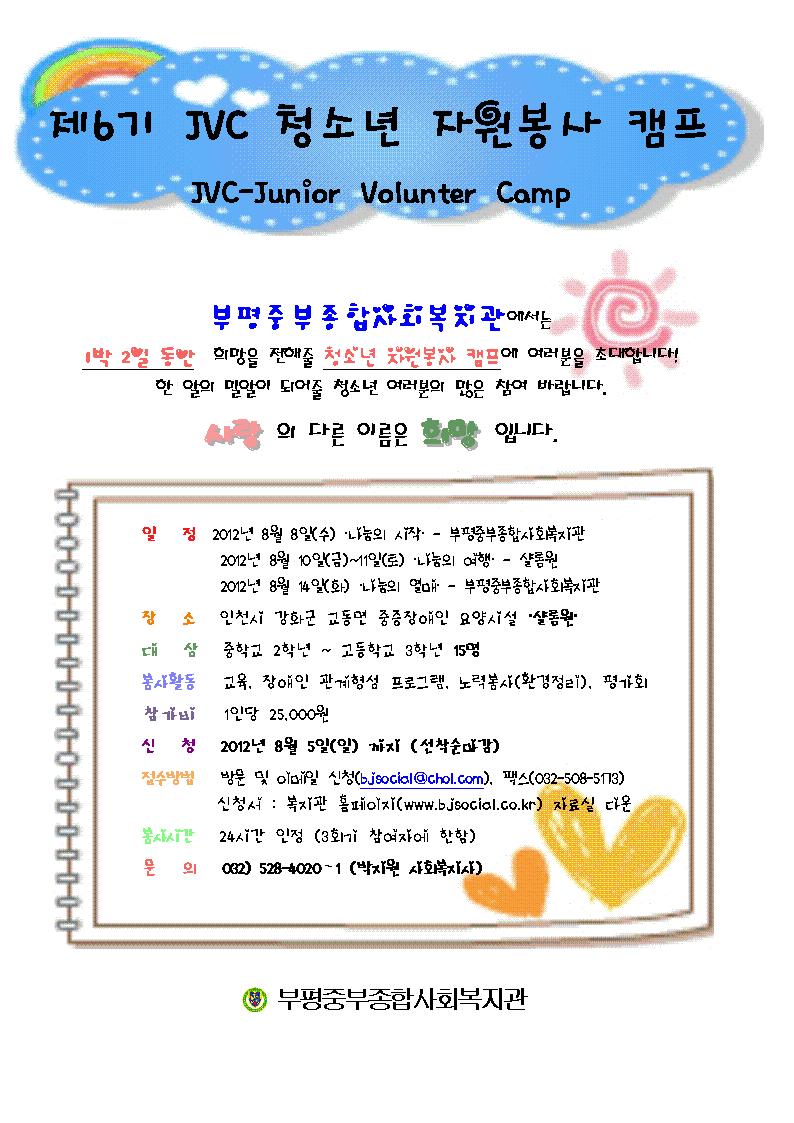 제6기 JVC 청소년 자원봉사 캠프
JVC-Junior Volunter Camp
부평중부종합사회복지관에서는
1박 2일 동안 희망을 전해줄 청소년 자원봉사 캠프에 여러분을 초대합니다!
한 알의 밀알이 되어줄 청소년 여러분의 많은 참여 바랍니다.
사랑 의 다른 이름은 희망 입니다.
일 정 2012년 8월 8일(수) '나눔의 시작' - 부평중부종합사회복지관
2012년 8월 10일(금)~11일(토) '나눔의 여행' - 샬롬원
2012년 8월 14일(화) '나눔의 열매' - 부평중부종합사회복지관
장 소 인천시 강화군 교동면 중증장애인 요양시설 '샬롬원'
대 상 중학교 2학년 ~ 고등학교 3학년 15명
봉사활동 교육, 장애인 관계형성 프로그램, 노력봉사(환경정리), 평가회
참가비 1인당 25,000원
신 청 2012년 8월 5일(일) 까지 (선착순마감)
접수방법 방문 및 이메일 신청(bjsocial@chol.com), 팩스(032-508-5113)
신청서 : 복지관 홈페이지(www.bjsocial.co.kr) 자료실 다운
봉사시간 24시간 인정 (3회기 참여자에 한함)
문 의 032) 528-4020~1 (박지원 사회복지사)
부평중부종합사회복지관